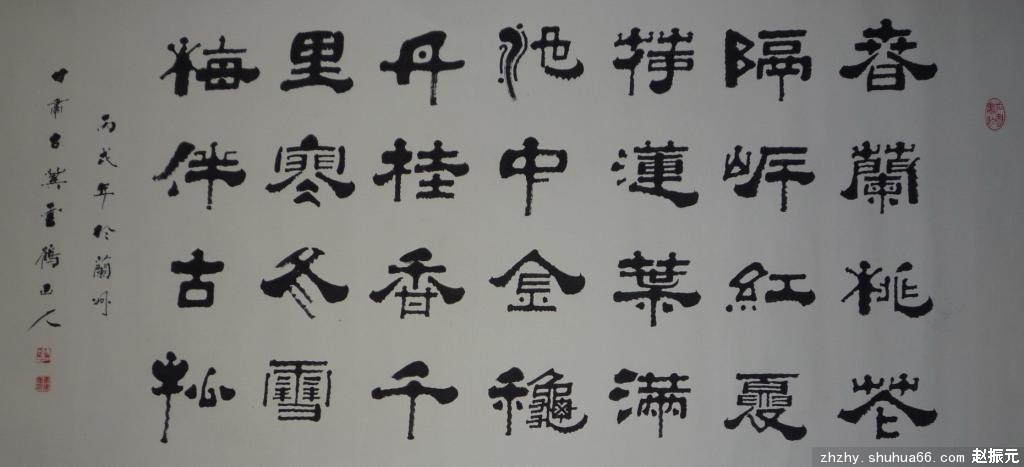 春蘭桃花
隔岸紅夏
荷蓮葉滿
池中金龝
丹桂香千
里寒冬雪
梅伴古松
丙戌年於蘭州
甘肅古冀雲鶴人
zhzhy.shuhua66.com 赵振元